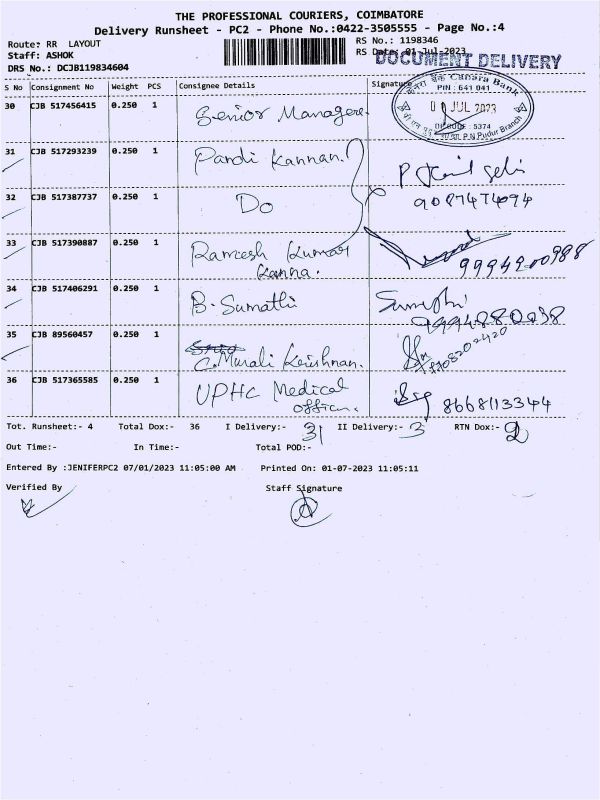 THE PROFESSIONAL COURIERS, COIMBATORE
Delivery Runsheet - PC2 - Phone No.:0422-3505555 - Page No.:4
Route: RR LAYOUT
RS No.: 1198346
Staff: ASHOK
RS Date: 01-Jul-2023
DOCUMENT DELIVERY
DRS No.: DCJB119834604
S No Consignment No Weight PCS Consignee Details Signature
Canara Bank
PIN : 641 041
JUL 2023
DP CODE : 5374
P N Pudur Branch
30 CJB 517456415 0.250 1 Senior Manager
31 CJB 517293239 0.250 1 Pandi Kannan
32 CJB 517387737 0.250 1 Do 9087474094
33 CJB 517390887 0.250 1 Ramesh Kumar
Kanna. 9994200988
34 CJB 517406291 0.250 1 B. Sumathi Sumathi
9994880238
35 CJB 89560457 0.250 1
C. Murali Krishnan.
36 CJB 517365585 0.250 1 UPHC Medical
officer. 8668113344
Tot. Runsheet:- 4 Total Dox:- 36 I Delivery:- 31 II Delivery:- 3 RTN Dox:- 2
Out Time:- In Time:- Total POD:-
Entered By :JENIFERPC2 07/01/2023 11:05:00 AM Printed On: 01-07-2023 11:05:11
Verified By Staff Signature